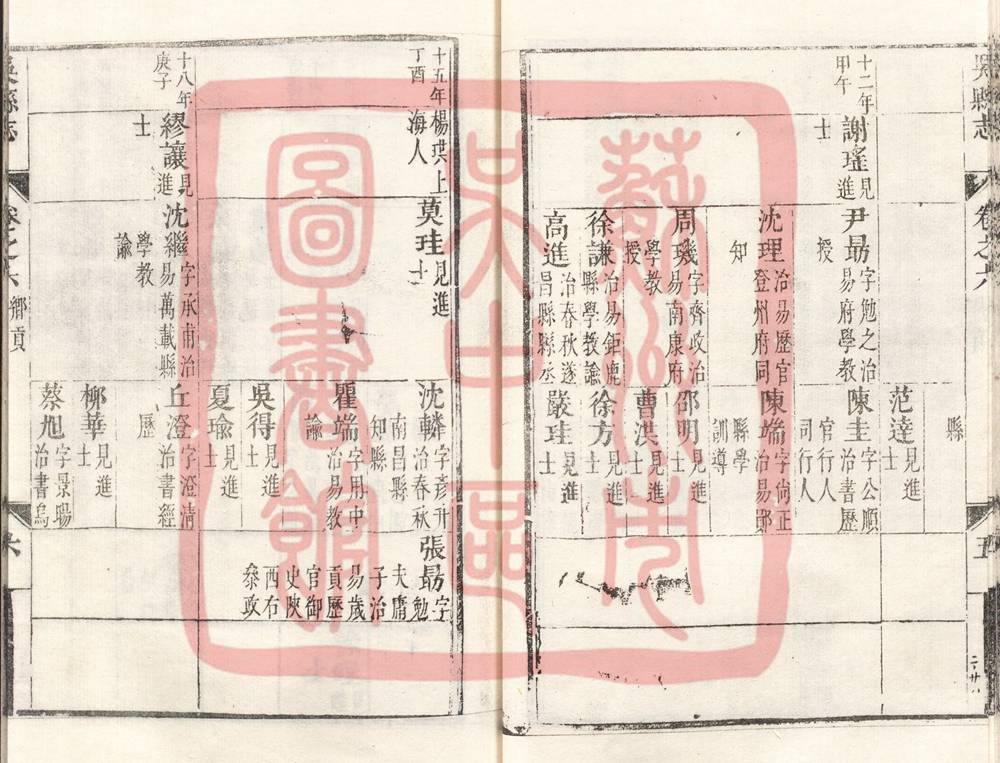 吳縣志
卷之六
五
縣
范達見進士
十二年甲午
謝瑤見進士
尹勗字勉之治易府學教授
陳圭字公順治書歷官行人司行人
沈理治易歷官登州府同知
陳端字尚正治易鄖縣學訓導
周璣字齊政治易南康府學教授
邵明見進士
曹洪見進士
徐謙治易鉅鹿縣學教諭
徐方見進士
高進治春秋遂昌縣縣丞
嚴珪見進士
十五年丁酉
楊琪上海人
莫珪見進士
沈轔字彥升治春秋南昌縣知縣
張勗字勉夫庸子治易歲貢歷官御史陝西右叅政
瞿端字用中治易教諭
吳得見進士
夏瑜見進士
十八年庚子
繆讓見進士
沈繼字承甫治易萬載縣學教諭
丘澄字澄清治書經歷
柳華見進士
蔡旭字景暘治書烏
吳縣志
卷之六
鄉貢
六
蘇州市吳中區圖書館